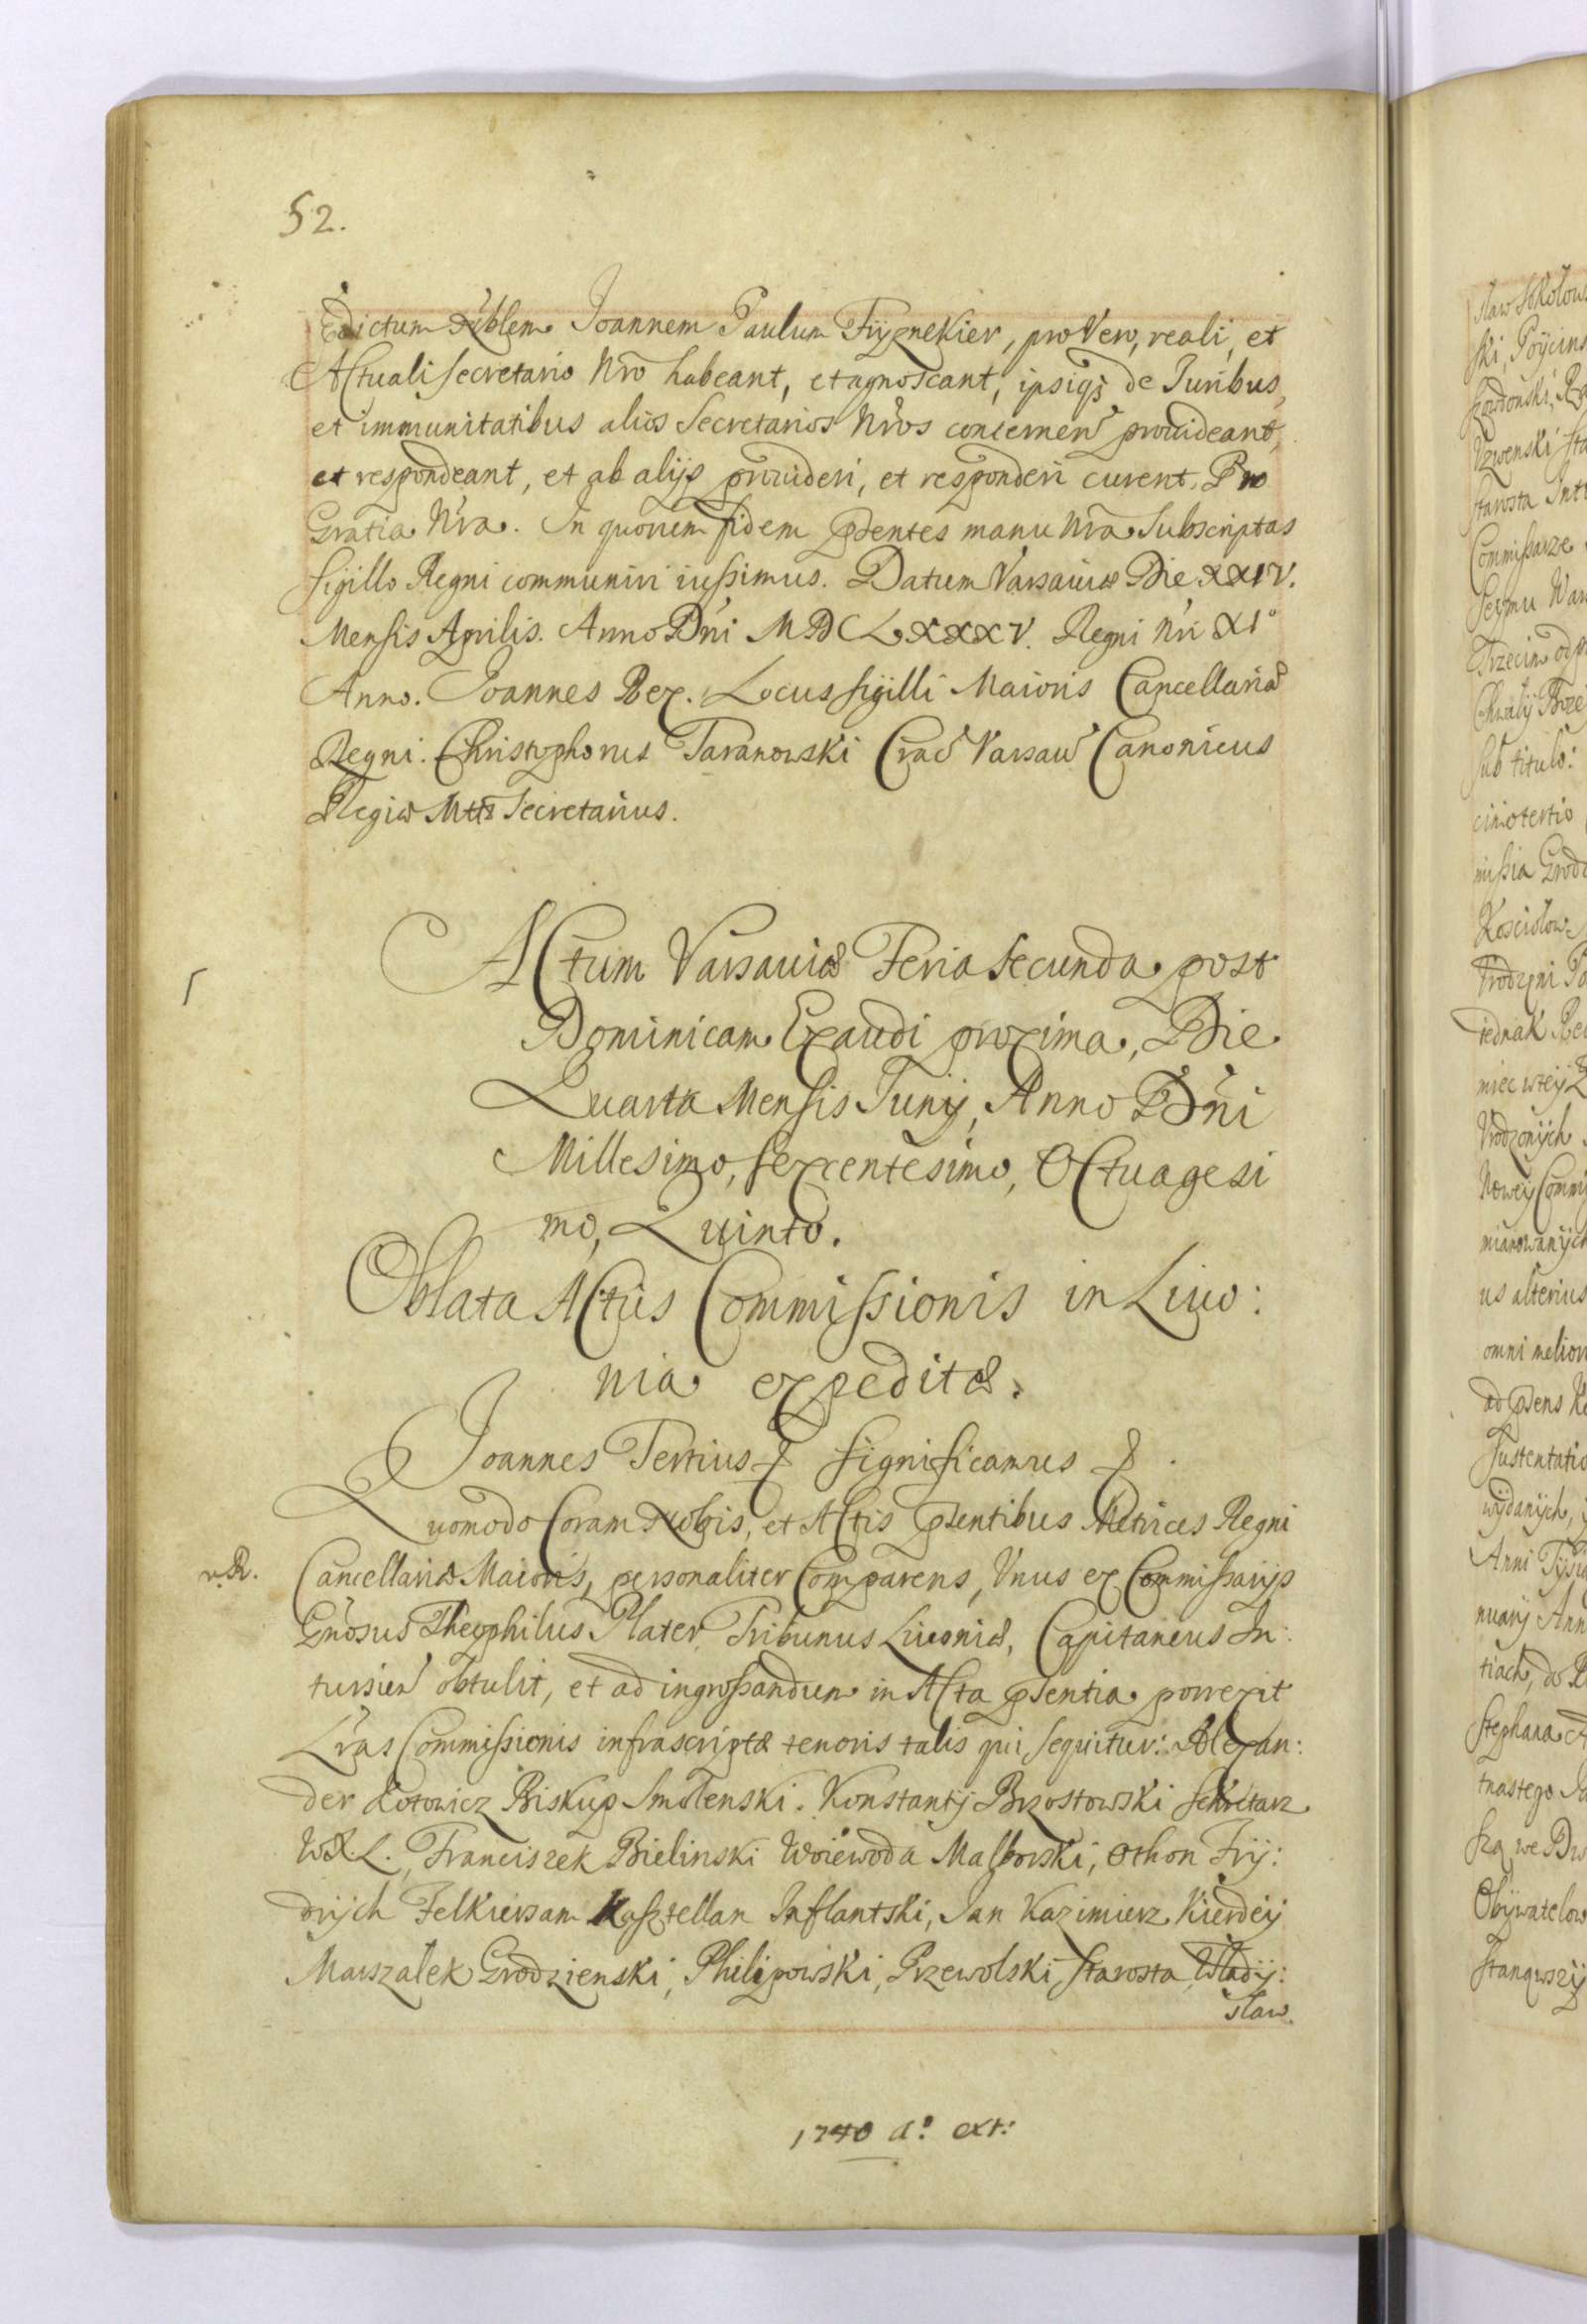 52.
Edictum Nblem Joannem Paulum Fryznekier, pro Vero, reali, et
Actuali secretario Nro habeant, et agnoscant, ipsiq; de Juribus,
et immunitatibus alios Secretarios Nros concernen prouideant,
et respondeant, et ab alijs prouideri, et responderi curent. Pro
Gratia Nra. In quorum fidem pntes manu Nra Subscriptas
Sigillo Regni communiri iussimus. Datum Varsauiæ Die XXIV.
Mensis Aprilis. Anno Dni MDCLXXXV. Regni Nri XI°
Anno. Joannes Rex. Locus sigilli Maioris Cancellariæ
Regni. Christophorus Taranowski Crac Varsau Canonicus
Regiæ Mttis Secretarius.
Actum Varsauiæ Feria secunda post
Dominicam Exaudi proxima, Die
Quarta Mensis Junij, Anno Dni
Millesimo, sexcentesimo, Octuagesi
mo, Quinto.
Oblata Actus Commissionis in Liuo:
nia expeditæ.
Joannes Tertius & significamus &.
Quomodo Coram Nobis, et Actis pntibus Metrices Regni
v.R. Cancellariæ Maioris, personaliter Comparens, Unus ex Commissarijs
Gnosus Theophilus Plater Tribunus Liuoniæ, Capitaneus In:
tursien obtulit, et ad ingrossandum in Acta pntia porrexit
Lras Commissionis infrascriptæ tenoris talis qui sequitur: Alexan:
der Kotowicz Biskup Smolenski. Konstantij Brzostowski Sekretarz
W.X.L., Franciszek Bielinski Woiewoda Malborski, Othon Frij:
drijch Felkiersam Kasztellan Inflantski, Jan Kazimierz Kierdeij
Marszałek Grodzienski, Philipowski, Przewolski Starosta, Władij:
sław.
1740 a: ext: